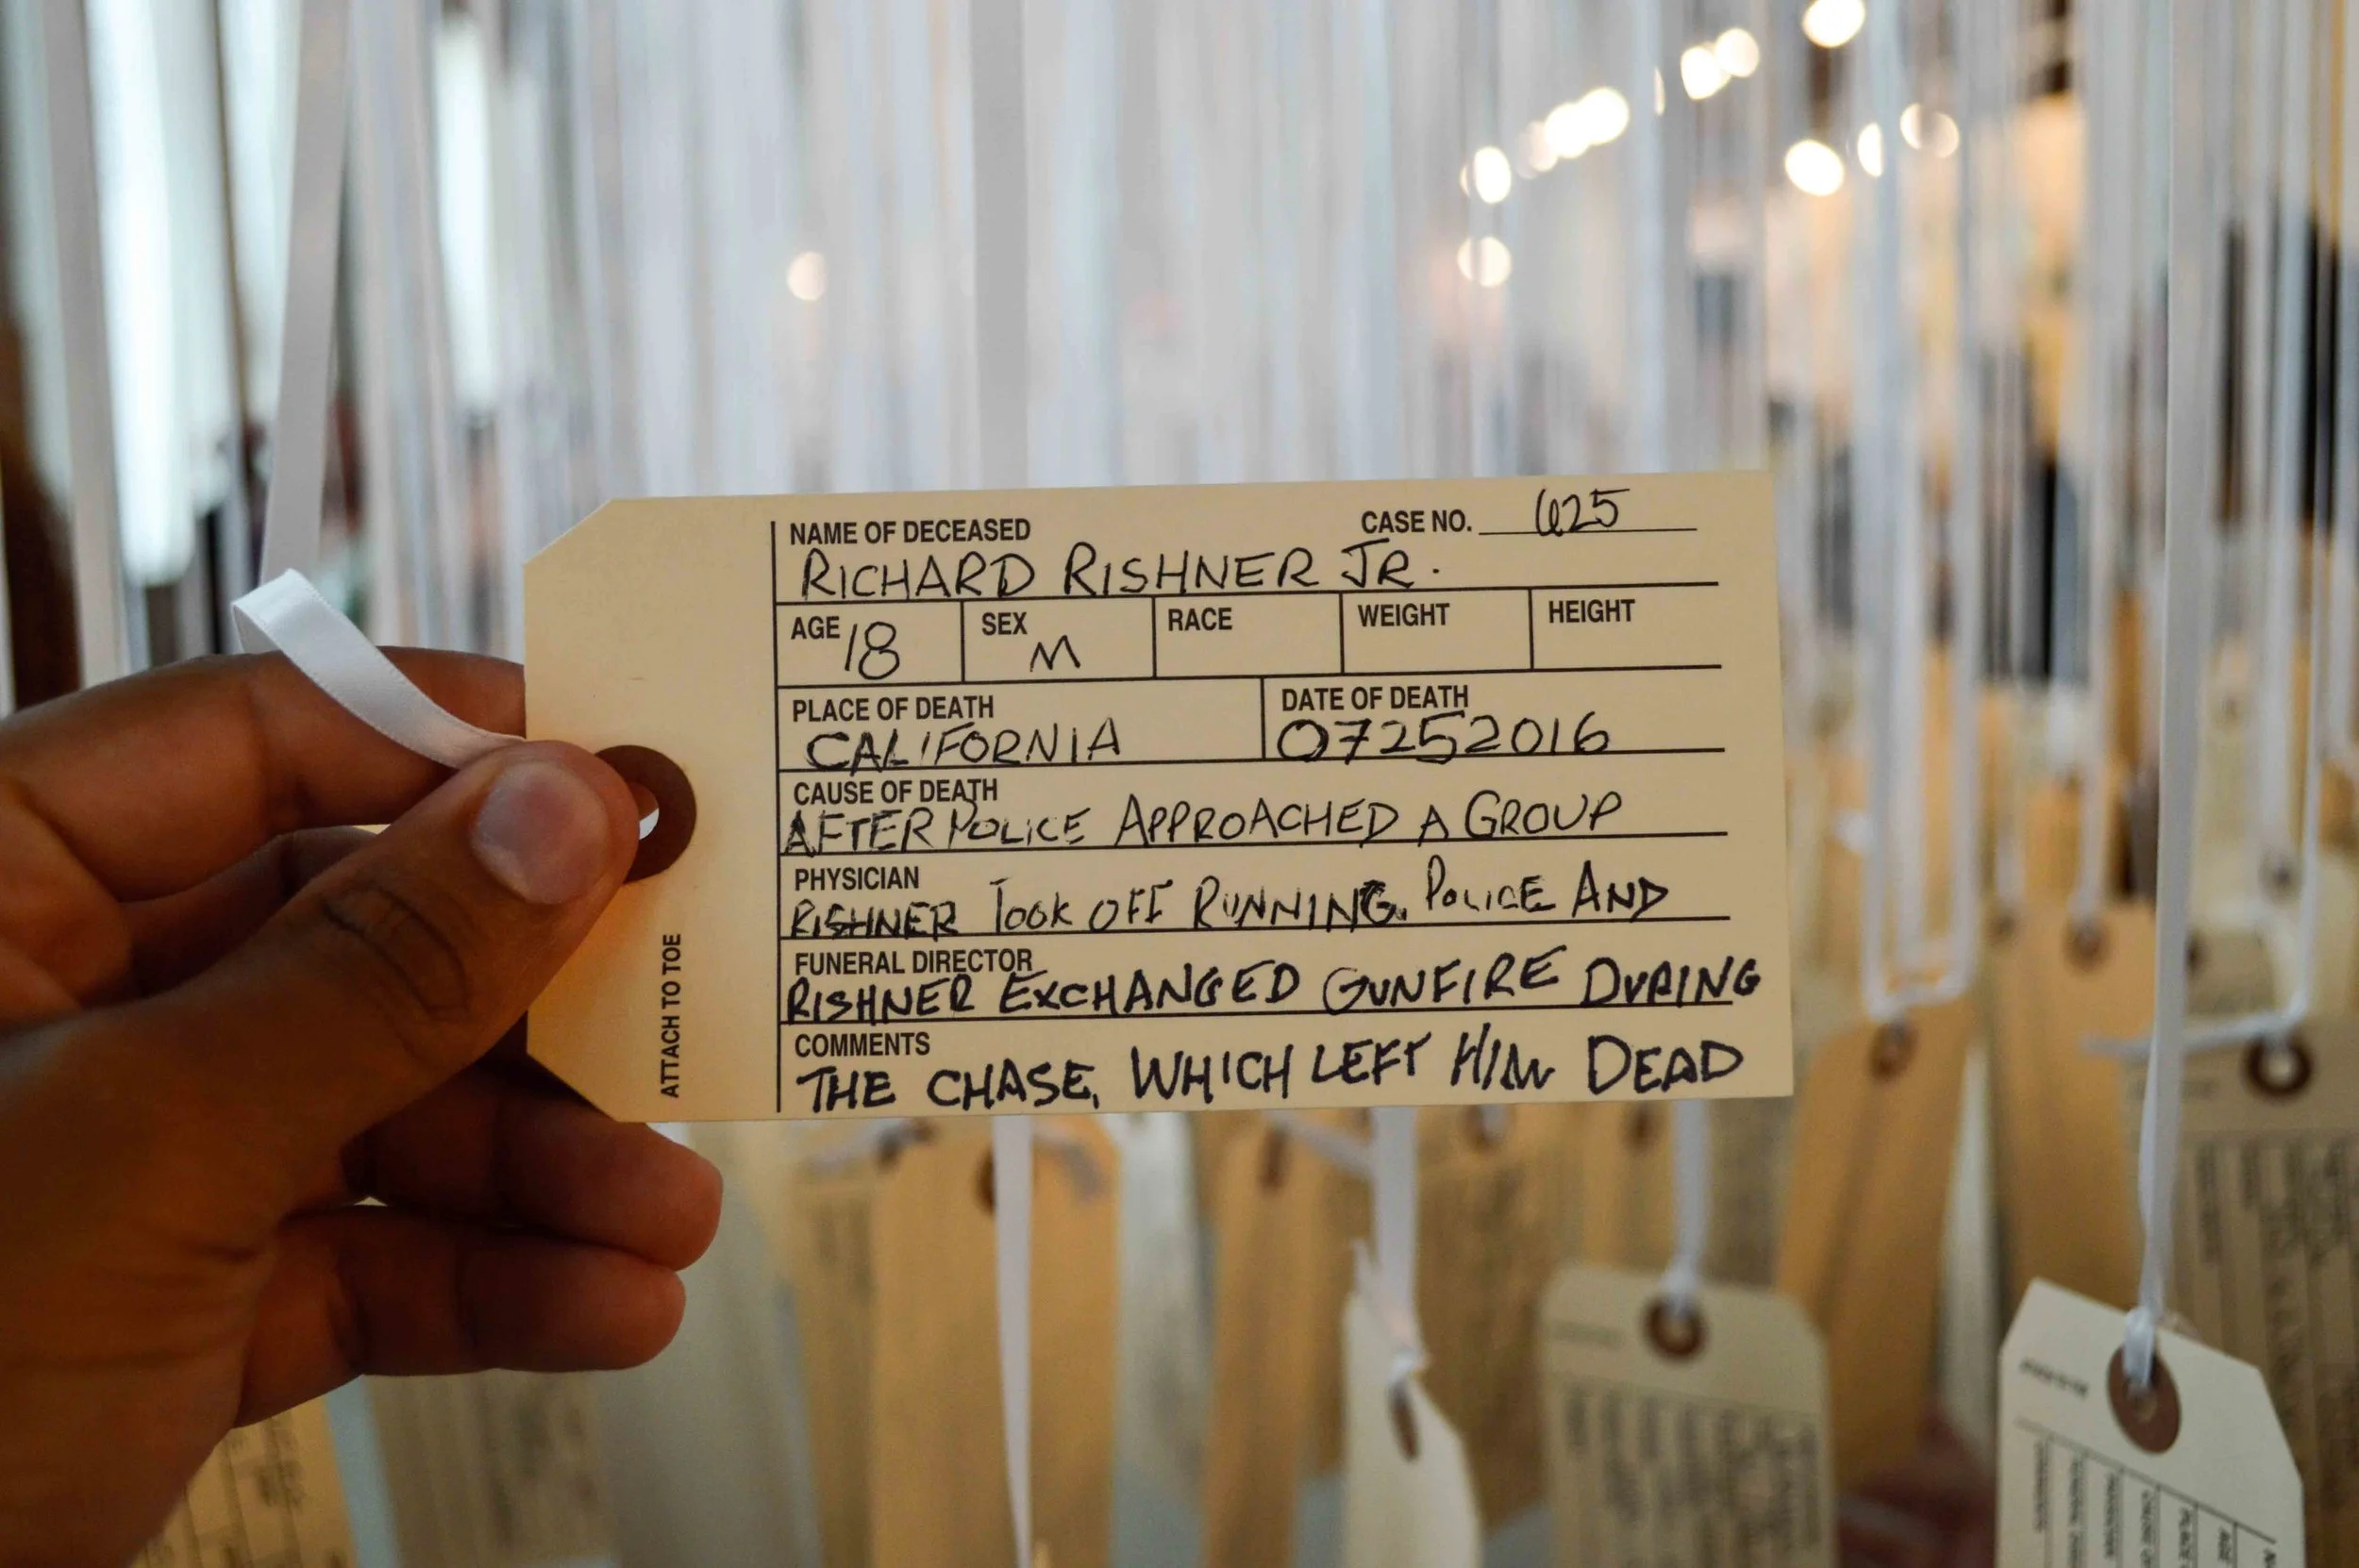 NAME OF DECEASED CASE NO. 625
RICHARD RISHNER JR.
AGE 18 SEX M RACE WEIGHT HEIGHT
PLACE OF DEATH DATE OF DEATH
CALIFORNIA 07252016
CAUSE OF DEATH
AFTER POLICE APPROACHED A GROUP
PHYSICIAN
RISHNER TOOK OFF RUNNING. POLICE AND
FUNERAL DIRECTOR
RISHNER EXCHANGED GUNFIRE DURING
COMMENTS
THE CHASE, WHICH LEFT HIM DEAD
ATTACH TO TOE